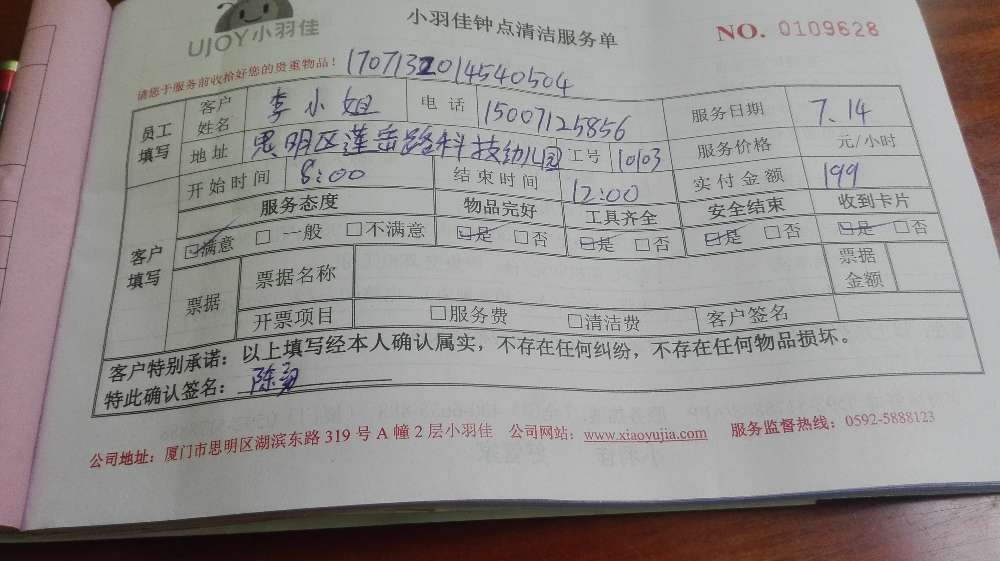 UJOY小羽佳
小羽佳钟点清洁服务单
NO. 0109628
请您于服务前收拾好您的贵重物品！
170713201454050​4
员工填写 客户姓名 李小姐 电话 15007125856 服务日期 7.14
地址 思明区莲岳路科技幼儿园 工号 10103 服务价格 元/小时
开始时间 8:00 结束时间 12:00 实付金额 199
客户填写 服务态度 物品完好 工具齐全 安全结束 收到卡片
☑满意 □一般 □不满意 ☑是 □否 ☑是 □否 ☑是 □否 ☑是 □否
票据 票据名称 票据金额
开票项目 □服务费 □清洁费 客户签名
客户特别承诺：以上填写经本人确认属实，不存在任何纠纷，不存在任何物品损坏。
特此确认签名：陈
公司地址：厦门市思明区湖滨东路 319 号 A 幢 2 层小羽佳 公司网站：www.xiaoyujia.com 服务监督热线：0592-5888123